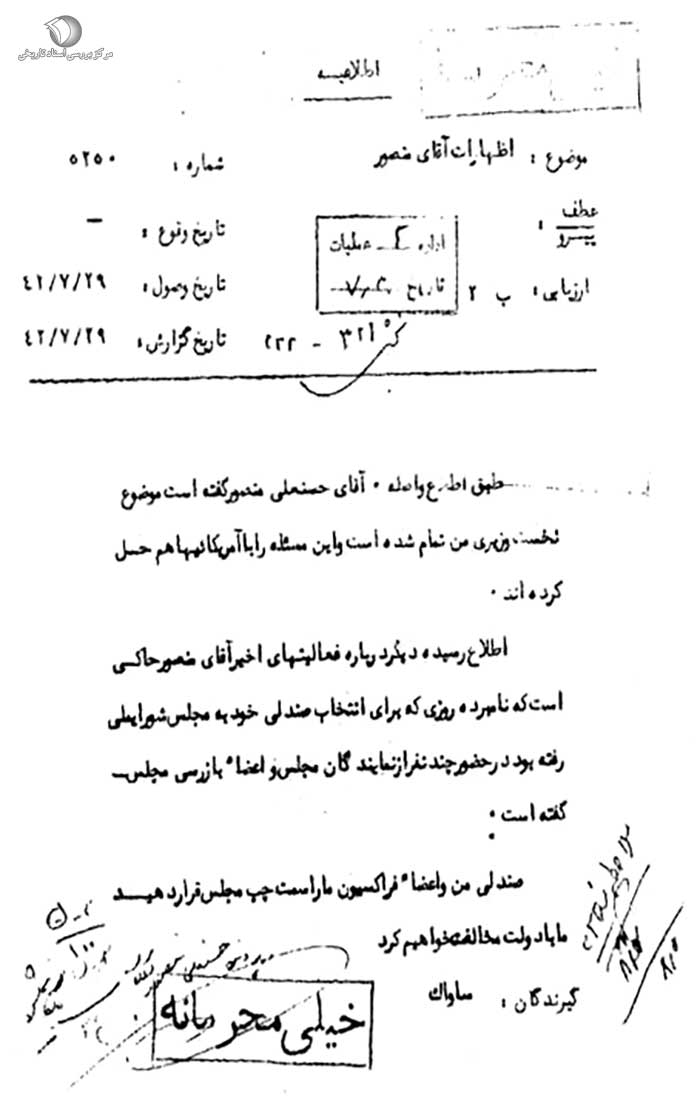 مرکز بررسی اسناد تاریخی
اطلاعیه
موضوع : اظهارات آقای منصور
شماره : ٥٢٥٠
عطف
پیرو :
تاریخ وقوع : –
اداره عملیات
تاریخ
ارزیابی : ب ٢
تاریخ وصول : ٤٢/٧/٢٩
تاریخ گزارش : ٤٢/٧/٢٩
٣٢١ - ٢٢٢
طبق اطلاع واصله ٠ آقای حسنعلی منصور گفته است موضوع
نخست وزیری من تمام شده است و این مسئله را با آمریکائیها هم حل
کرده اند ٠
اطلاع رسیده دیگر درباره فعالیتهای اخیر آقای منصور حاکسی
است که نامبرده روزی که برای انتخاب صندلی خود به مجلس شورایملی
رفته بود در حضور چند نفر از نمایندگان مجلس و اعضاء بازرسی مجلس
گفته است :
صندلی من و اعضاء فراکسیون ما را سمت چپ مجلس قرار دهید
ما با دولت مخالفت خواهیم کرد
گیرندگان : ساواك
خیلی محرمانه